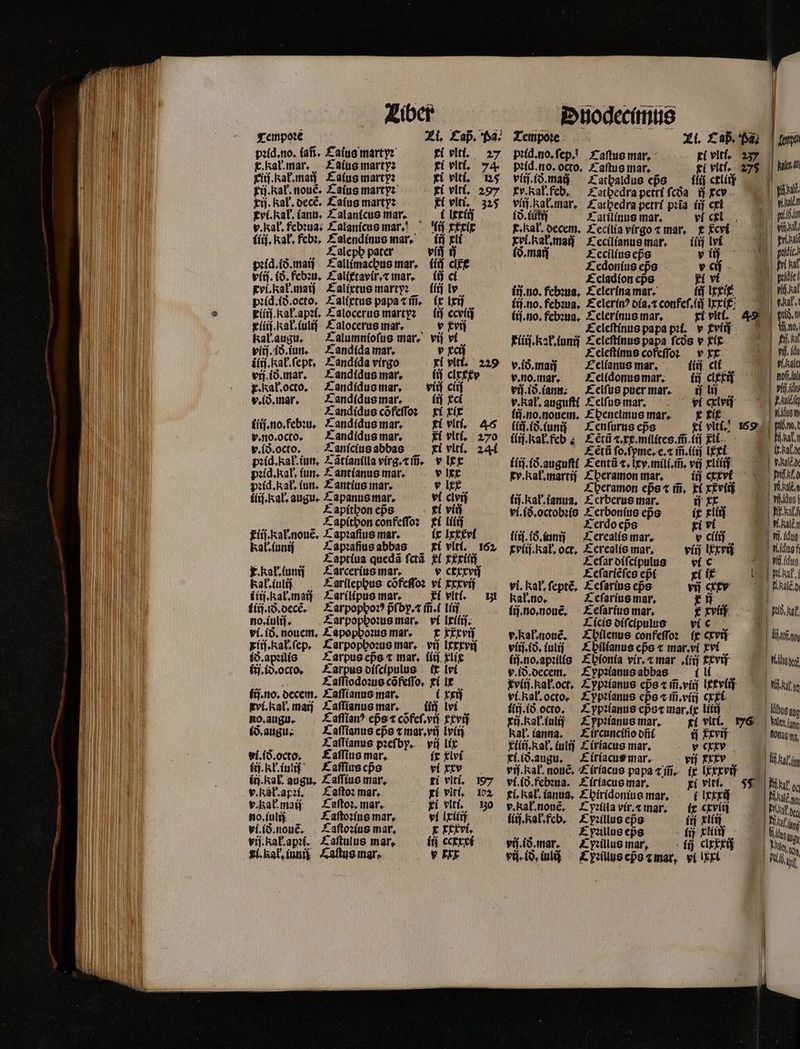 Liber
Duodecimus
Tempore Li. Cap. Pa.
prid.no. iañ. Caius martyr xi vlti. 27
x.kal.mar. Caius martyr xi vlti. 74
xiij.kal.maij Caius martyr xi vlti. 125
xij.kal.nouē. Caius martyr xi vlti. 297
xij.kal. decē. Caius martyr xi vlti. 325
xvi.kal. ianu. Calanicus mar. i lxxiiij
v.kal.februa. Calanicus mar. iij xxxix
iiij. kal. febr. Calendinus mar. iij xli
Caleph pater viij ij
prid.id.maij Callimachus mar. iiij clxx
viij. id. febru. Calixtavir.⁊ mar. iij ci
xvi.kal.maij Calixtus martyr iiij lv
prid.id.octo. Calixtus papa ⁊ m̄. ix lxij
xiiij.kal.apri. Calocerus martyr iij ccviij
xiiij.kal.iulij Calocerus mar. v xvij
kal.augu. Calumniosus mar. vij vi
viij. id.iun. Candida mar. v xcij
iiij.kal.sept. Candida virgo xi vlti. 229
vij.id.mar. Candidus mar. iij clxxxv
x.kal.octo. Candidus mar. viij ciij
v.id.mar. Candidus mar. iij xci
Candidus cōfessor xi xix
iiij.no.febru. Candidus mar. xi vlti. 46
v.no.octo. Candidus mar. xi vlti. 270
v.id.octo. Canicius abbas xi vlti. 241
prid.kal.iun. Cātianilla virg.⁊ m̄. v lxx
prid.kal. iun. Cantianus mar. v lxx
prid.kal. iun. Cantius mar. v lxx
iiij.kal. augu. Capanus mar. vi clvij
Capithon ep̄s xi viij
Capithon confessor xi liiij
xiij.kal.nouē. Caprasius mar. ix lxxxvi
kal.iunij Caprasius abbas xi vlti. 162
Captiua quedā sctā xi xxxiiij
x.kal.iunij Carcerius mar. v cxxxvij
kal.iulij Carilephus cōfessor vi xxxvij
iiij.kal.maij Carilipus mar. xi vlti. 131
iiij.id.decē. Carpophor⁹ p̄sby.⁊ m̄. i liij
no.iulij. Carpophorus mar. vi lxiiij.
vi. id. nouem. Capophorus mar. x xxxvij
xiij.kal.sep. Carpophorus mar. vij lxxxvij
id.aprilis Carpus ep̄s ⁊ mar. iiij xlix
iij.id.octo. Carpus discipulus ix lvi
Cassiodorus cōfesso. xi lx
iij.no. decem. Cassianus mar. i xxij
xvi.kal. maij Cassianus mar. iiij lvi
no.augu. Cassian⁹ ep̄s ⁊ cōfes.vij xxvij
id.augu. Cassianus ep̄s ⁊ mar.vij lviij
Cassianus presby. vij lix
vi.id.octo. Cassius mar. ix xlvi
iij.kl.iulij Cassius ep̄s vi xxv
iij.kal. augu. Cassius mar. xi vlti. 197
v.kal.apri. Castor mar. xi vlti. 102
v.kal.maij Castor. mar. xi vlti. 130
no.iulij Castorius mar. vi lxiiij
vi.id.nouē. Castorius mar. x xxxvi.
vij.kal.apri. Castulus mar. iij ccxxxi
xi.kal.iunij Castus mar. v xxx
Tempore Li. Cap. Pa.
prid.no.sep. Castus mar. xi vlti. 237
prid.no. octo. Castus mar. xi vlti. 275
viij.id.maij Cathaldus ep̄s iiij cxliix
xv.kal.feb. Cathedra petri scda ij xcv
viij.kal.mar. Cathedra petri pria iij cxl
id.iulij Catilinus mar. vi cxl
x.kal. decem. Cecilia virgo ⁊ mar. x xcvi
xvi.kal.maij Cecilianus mar. iiij lvi
id.maij Cecilius ep̄s v iij
Cedonius ep̄s v cij
Celadion ep̄s xi vi
iij.no. februa. Celerina mar. iij lxxix
iij.no. februa. Celerin⁹ dia.⁊ confes.iij lxxix
iij.no. februa. Celerinus mar. xi vlti. 49
Celestinus papa pri. v xviij
xiiij.kal.iunij Celestinus papa scds v xix
Celestinus cofessor v xx
v.id.maij Celianus mar. iiij cli
v.no.mar. Celidonus mar. iij clxxij
vij.id.iann. Celsus puer mar. ij lij
v.kal. augusti Celsus mar. vi cxlvij
iij.no.nouem. Chenelmus mar. x xix
iiij.id.iunij Censurus ep̄s xi vlti. 169
iiij.kal.feb. Cētū ⁊.xx.milites.m̄.iij xli
Cētū so.spme.c.⁊ m̄.iiij lxxi
iiij.id.augusti Centū ⁊. lxv.mili.m̄. vij xliiij
xv.kal.martij Cheramon mar. iij cxxvi
Cheramon ep̄s ⁊ m̄. xi xxviij
iij.kal.ianua. Cerberus mar. ij xx
vi.id.octobris Cerbonius ep̄s ix xliij
Cerdo ep̄s xi vi
iiij. id.iunij Cerealis mar. v ciiij
xviij.kal. oct. Cerealis mar. viij lxxvij
Cesar discipulus vi c
Cesariēses ep̄i xi ix
vi. kal. septē. Cesarius ep̄s vij cxxv
kal.no. Cesarius mar. x ij
iij.no.nouē. Cesarius mar. x xviij
Cicis discipulus vi c
v.kal.nouē. Chilenus confessor ix cxvij
viij.id. iulij Chilianus ep̄s ⁊ mar.vi xvi
iij.no.aprilis Chionia vir.⁊ mar .iiij xxvij
v.id.decem. Cyprianus abbas i li
xviij.kal.oct. Cyprianus ep̄s ⁊ m̄.viij lxxviij
vi.kal.octo. Cyprianus ep̄s ⁊ m̄.viij cxxi
iiij.id.octo. Cyprianus ep̄s⁊ mar.ix liiij
xij.kal.iulij Cyprianus mar. xi vlti. 176
kal. ianna. Circuncisio dñi ij xxvij
xiiij.kal. iulij Ciriacus mar. v cxxv
xi.id.augu. Ciriacus mar. vij xxxv
vij.kal. nouē. Ciriacus papa ⁊ m̄. ix lxxxvij
vi.id.februa. Ciriacus mar. xi vlti. 55
xi.kal. ianua. Chiridonius mar. i lxxxij
v.kal.nouē. Cyrilla vir.⁊ mar. ix cxviij
iiij.kal.feb. Cyrillus ep̄s iij xliij
Cyrillus ep̄s iij xliiij
vij.id.mar. Cyrillus mar. iij clxxxij
vij.id. iulij Cyrillus ep̄s ⁊ mar. vi lxxi